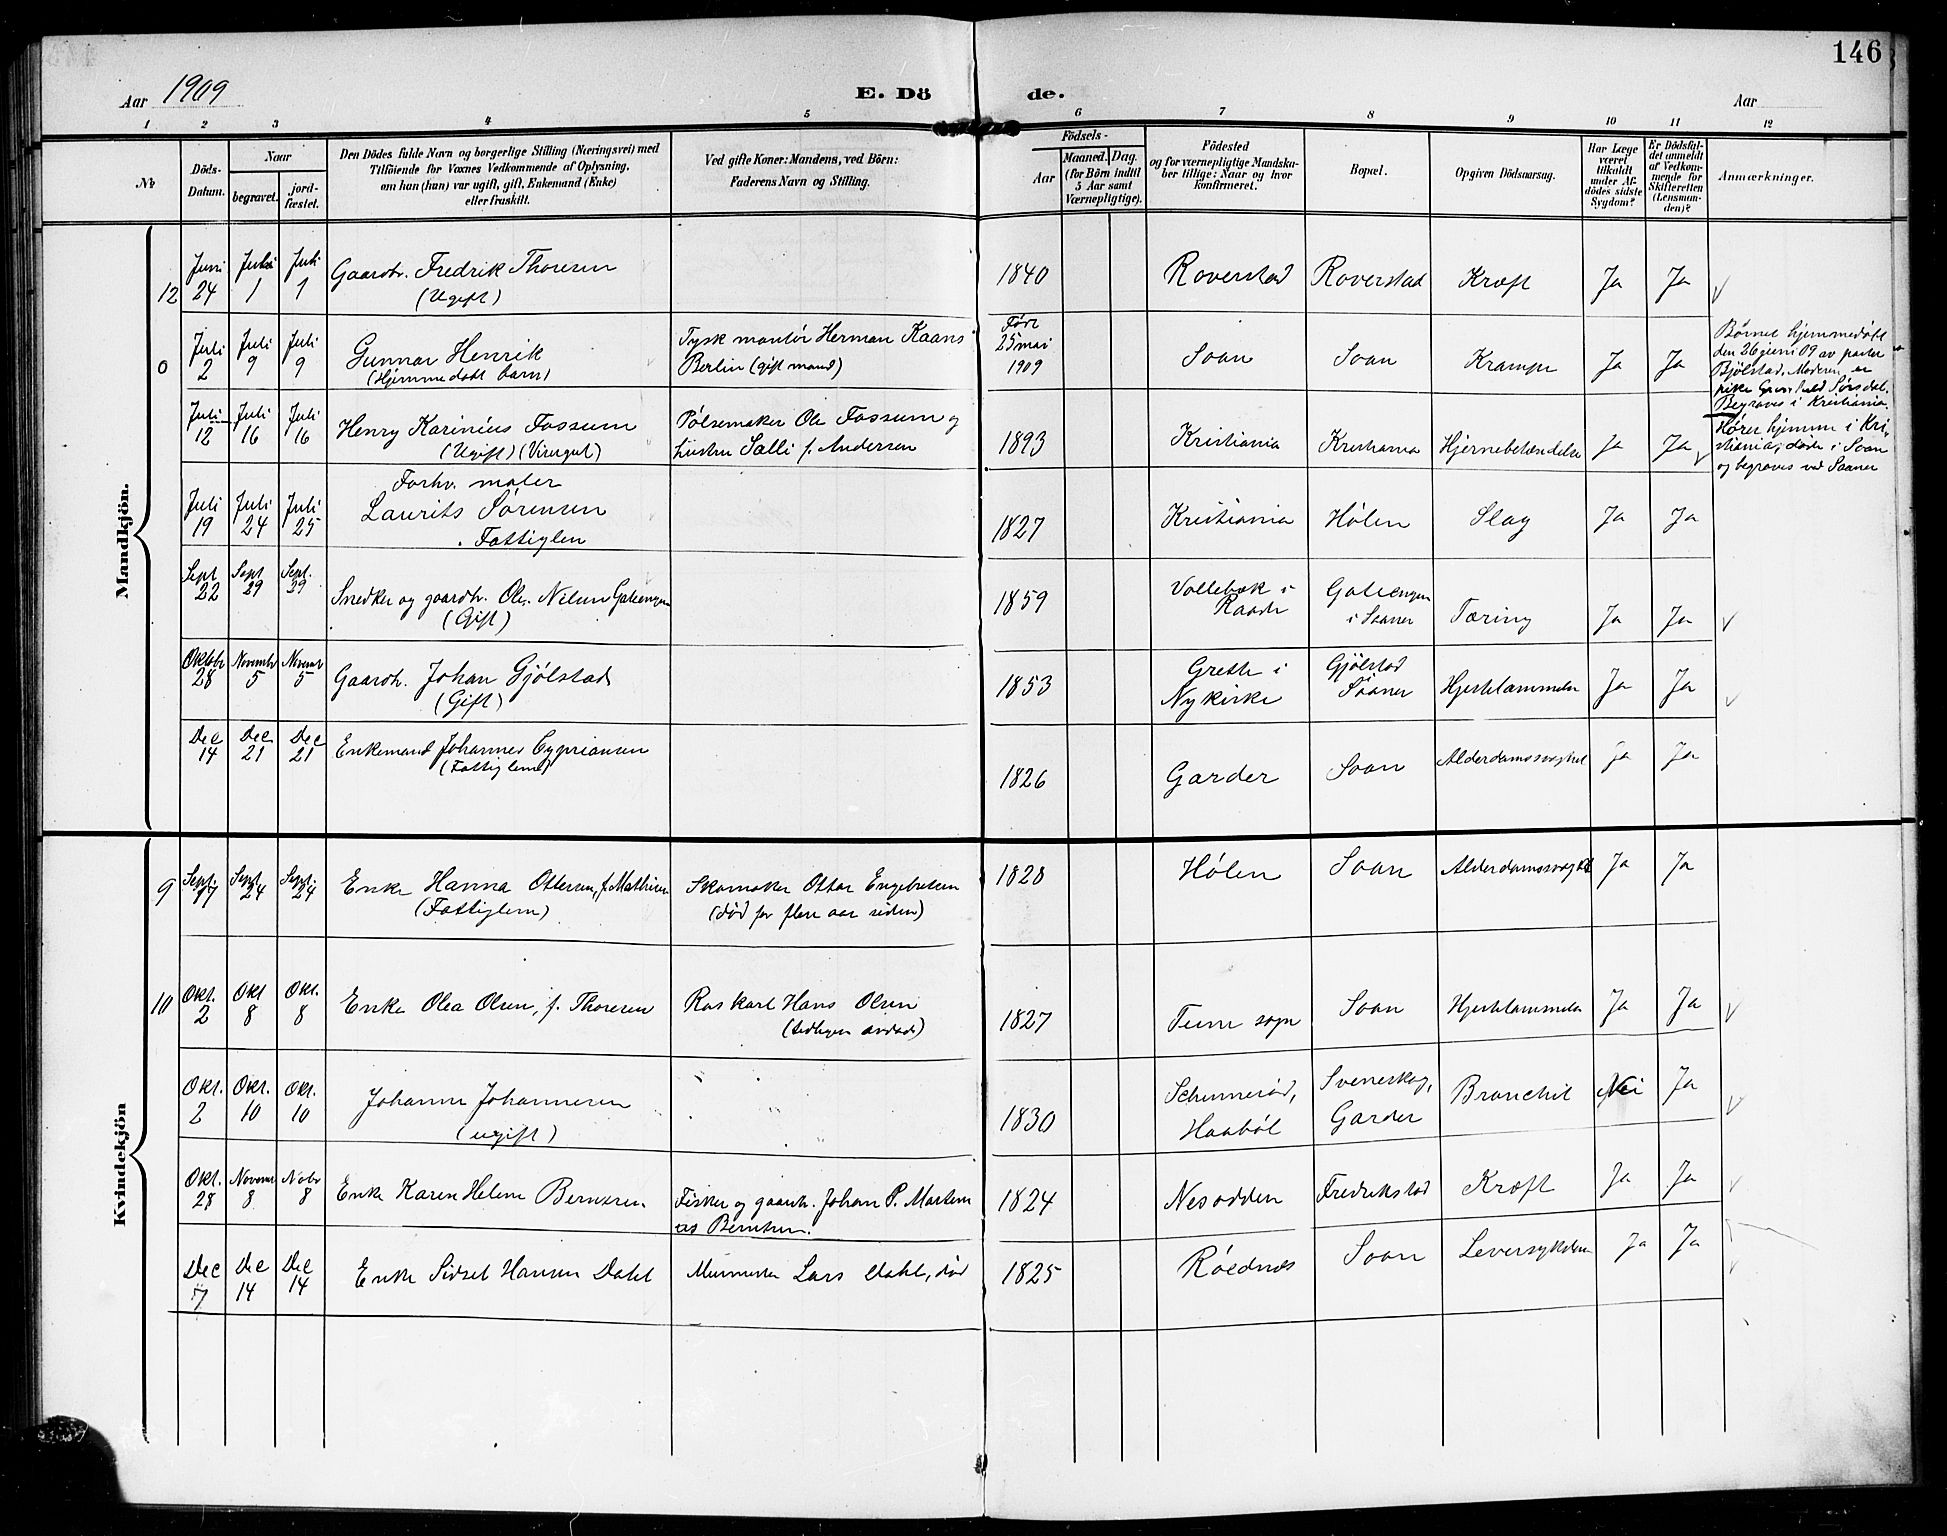 146
Aar 1909
E. Dö de.
Aar
1 2 3 4 5 6 7 8 9 10 11 12
No
Döds-
Datum.
Naar
begravet.
jord-
fæstet.
Den Dödes fulde Navn og borgerlige Stilling (Næringsvei) med
Tilföiende for Voxnes Vedkommende af Oplysning,
om han (hun) var ugift, gift, Enkemand (Enke)
eller fraskilt.
Ved gifte Koner: Mandens, ved Börn:
Faderens Navn og Stilling.
Födsels-
Aar
Maaned. Dag.
(for Börn indtil
5 Aar samt
Værnepligtige).
Födested
og for værnepligtige Mandska-
ber tillige: Naar og hvor
konfirmeret.
Bopæl.
Opgiven Dödsaarsag.
Har Læge
været
tilkaldt
under Af-
dödes sidste
Sygdom?
Er Dödsfal-
det anmeldt
af Vedkom-
mende for
Skifteretten
(Lensman-
den)?
Anmærkninger.
Mandkjön.
12 Juni 24 Juli 1 Juli 1 Gaardbr. Fredrik Thoresen
(Ugift)
1840 Roverstad Roverstad Kræft Ja Ja
0 Juli 2 Juli 9 Juli 9 Gunnar Henrik
(Hjemmedøbt barn)
Tysk montør Herman Kaans
Berlin (gift mand)
Født
25 mai
1909
Soon Soon Krampe Ja Ja
Barnet hjemmedøbt
den 26 juni 09 av pastor
Bjølstad. Moderen er
pike Gunhild Sørsdal.
Begraves i Kristiania.
Juli 12 Juli 16 Juli 16 Henry Karinius Fossum
(Ugift)
Pølsemaker Ole Fossum og
hustru Salli f. Andersen
1893 Kristiania Kristiania Hjernebetændelse Ja Ja
Hører hjemme i Kri-
stiania, døde i Soon
og begraves ved Saaner
Juli 19 Juli 24 Juli 25 Forhv. maler
Laurits Sørensen
Fattiglem
1827 Kristiania Hølen Slag Ja Ja
Sept 22 Sept 29 Sept. 29 Snedker og gaardbr. Ole Nilsen Galeengen
(Gift)
1859 Vollebæk i
Raade
Galeengen
i Saaner
Tæring Ja Ja
Oktober 28 Novembr 5 Novembr 5 Gaardbr. Johan Gjølstad
(Gift)
1853 Grette i
Nykirke
Gjølstad
Saaner
Hjertelammelse Ja Ja
Dec 14 Dec 21 Dec 21 Enkemand Johannes Cypriansen
(Fattiglem)
1826 Garder Soon Alderdomssvaghet Ja Ja
Kvindekjön
9 Sept. 17 Sept. 24 Sept. 24 Enke Hanna Ottersen, f. Mathisen
(Fattiglem)
Skomaker Ottar Engebretsen
(død for flere aar siden)
1828 Hølen Soon Alderdomssvaghet Ja Ja
10 Okt. 2 Okt 8 Okt. 8 Enke Olea Olsen, f. Thoresen
Raskarl Hans Olsen
(tidligere avdød)
1827 Tune sogn Soon Hjertelammelse Ja Ja
Okt. 2 Okt. 10 Okt. 10 Johanne Johannesen
(ugift)
1830
Haabøl
Sveneskog,
Garder
Bronchit Nei Ja
Okt. 28 Novemr 8 Nobr 8 Enke Karen Helene Berntsen
Fisker og gaardbr. Johan P. Martini-
us Berntsen.
1824 Nesodden Fredrikstad Kræft Ja Ja
Dec 7 Dec 14 Dec 14 Enke Sidsel Hansen Dahl
Murmester Lars Dahl, død
1825 Rødenes Soon Leversykdom Ja Ja